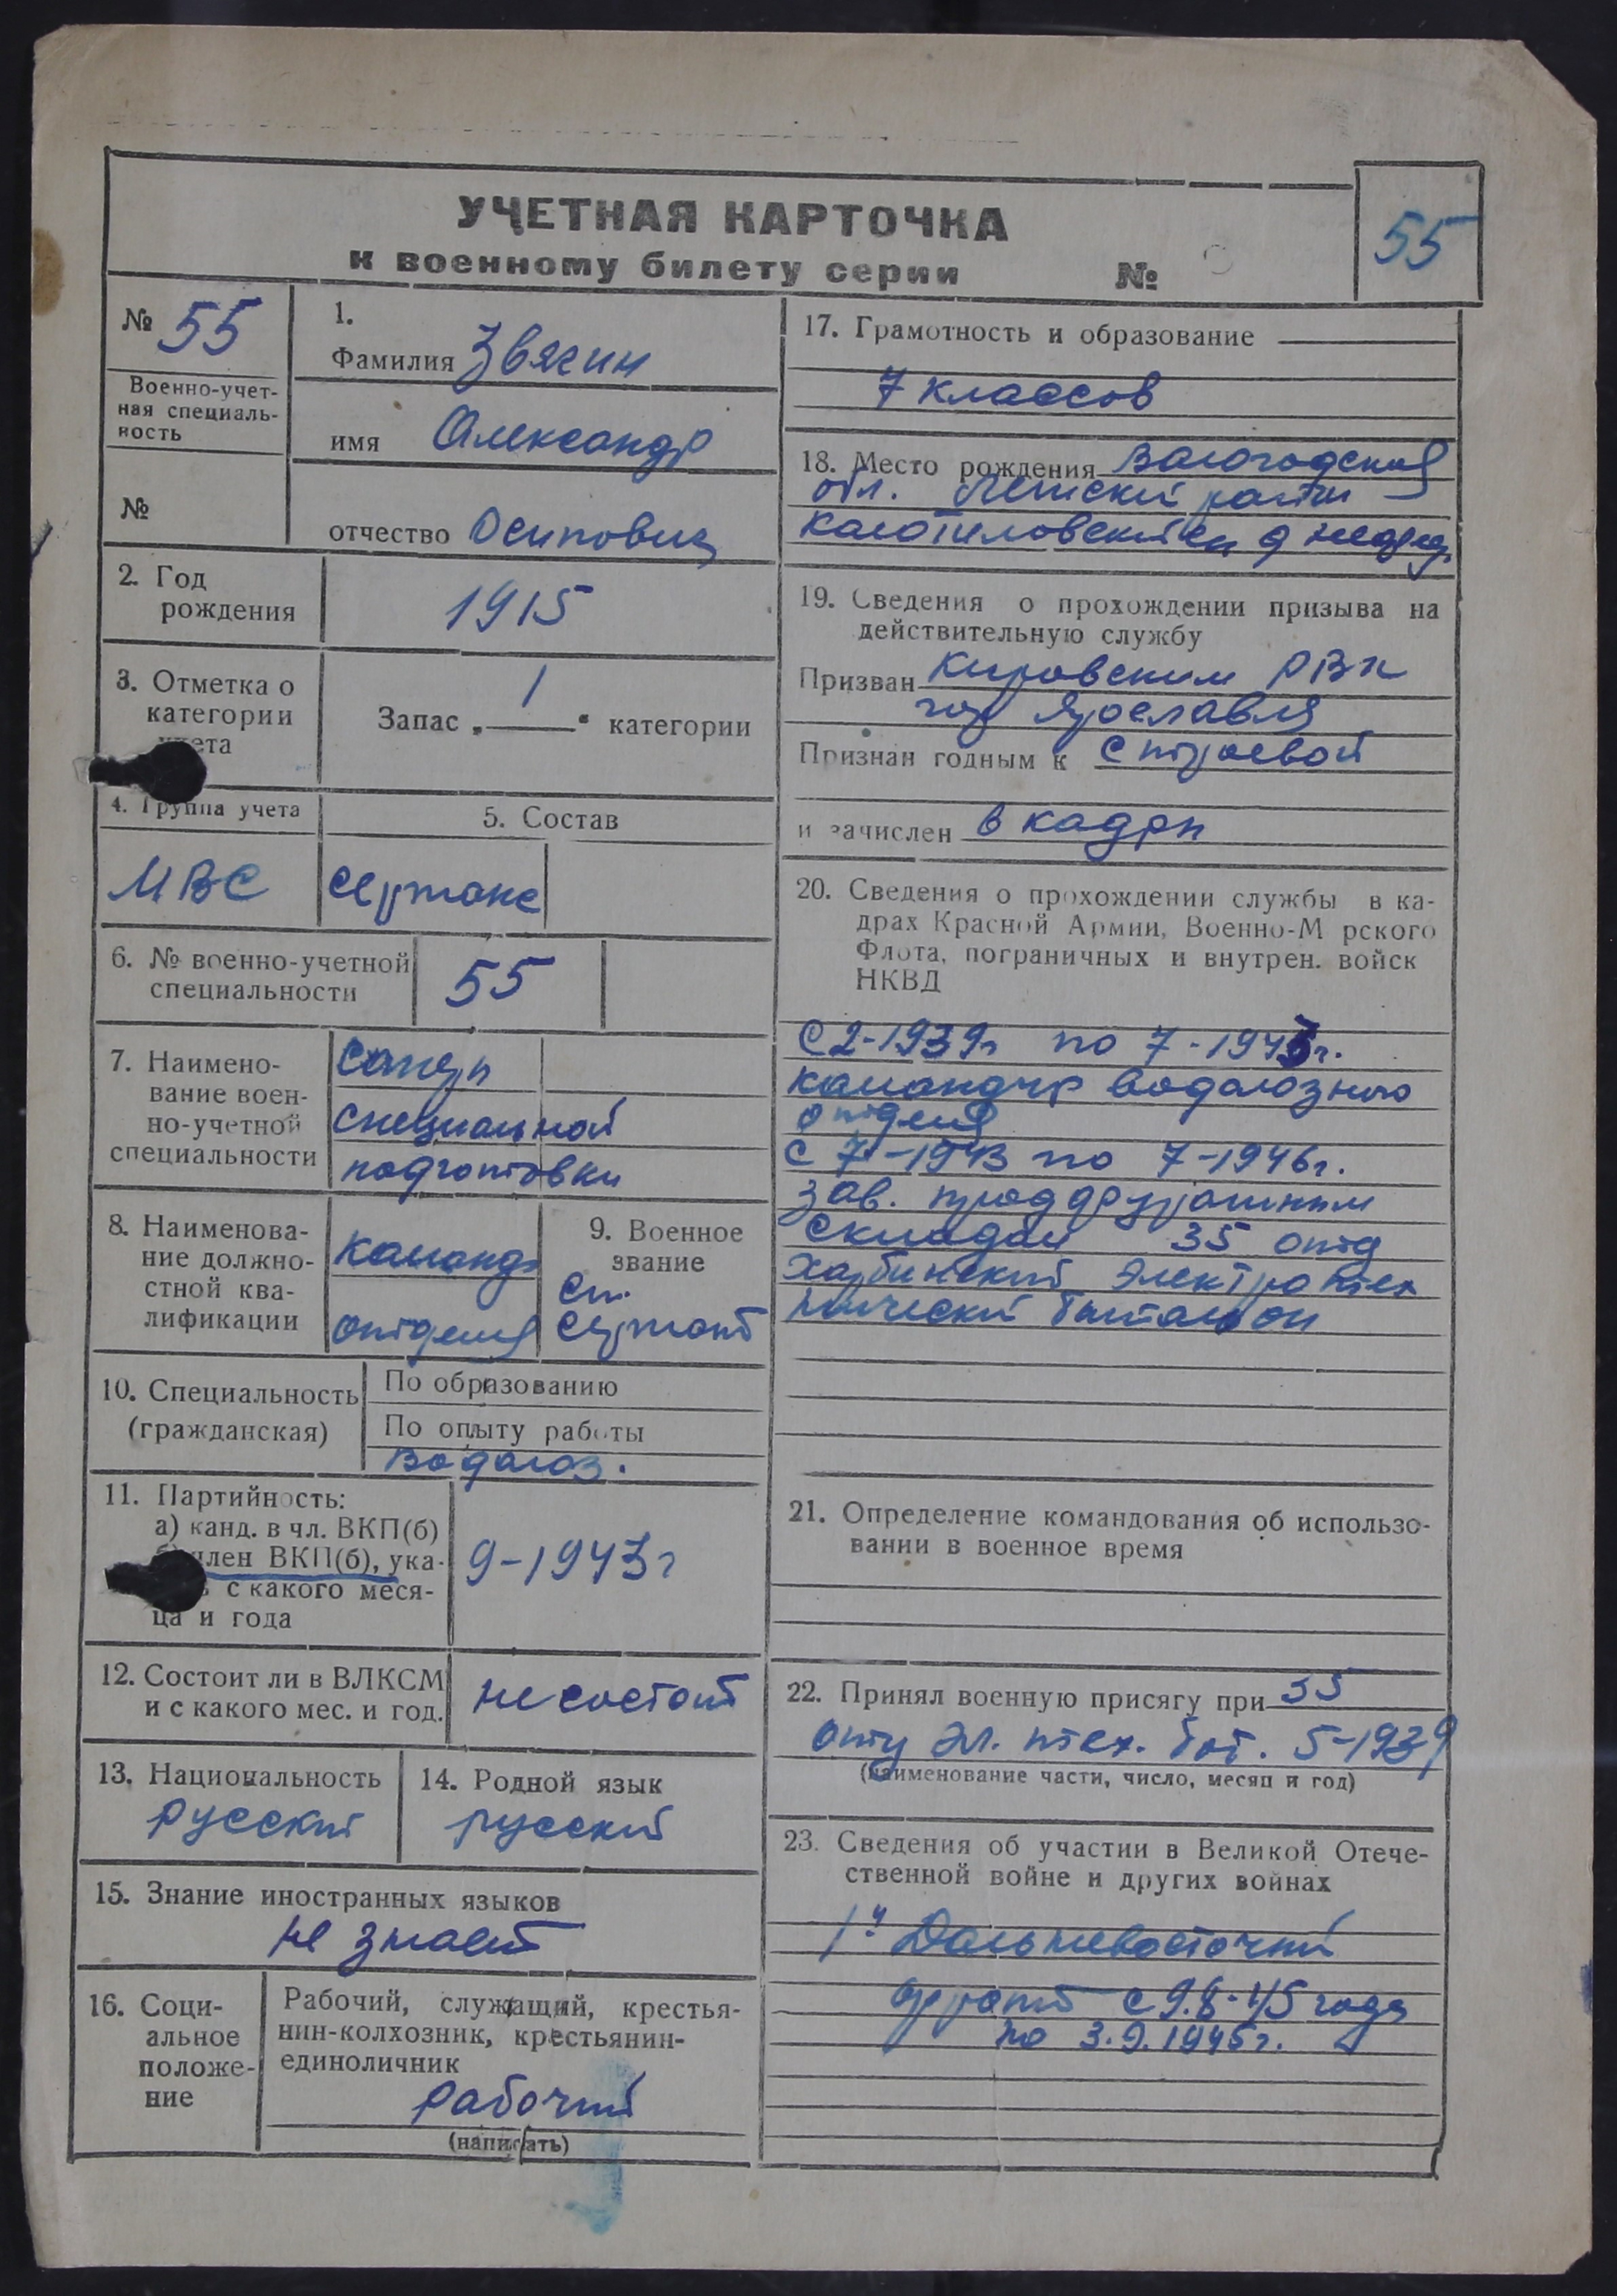 УЧЕТНАЯ КАРТОЧКА
к военному билету серии №
55
№ 55
Военно-учет-
ная специаль-
ность
№
1.
Фамилия Звягин
имя Александр
отчество Осипович
2. Год
рождения
1915
3. Отметка о
категории
учета
Запас „ 1 " категории
4. Группа учета
МВС
5. Состав
сержанс
6. № военно-учетной
специальности
55
7. Наимено-
вание воен-
но-учетной
специальности
сапер
специальной
подготовки
8. Наименова-
ние должно-
стной ква-
лификации
команд
отделия
9. Военное
звание
Ст.
сержант
10. Специальность
(гражданская)
По образованию
По опыту работы
Водолаз.
11. Партийность:
а) канд. в чл. ВКП(б)
б) член ВКП(б), ука-
с какого меся-
ца и года
9-1943г
12. Состоит ли в ВЛКСМ
и с какого мес. и год.
не состоит
13. Национальность
русский
14. Родной язык
русский
15. Знание иностранных языков
не знает
16. Соци-
альное
положе-
ние
Рабочий, служащий, крестья-
нин-колхозник, крестьянин-
единоличник
рабочий
(написать)
17. Грамотность и образование
7 классов
18. Место рождения Вологодская
обл. район
19. Сведения о прохождении призыва на
действительную службу
Призван Кировским РВК
гор Ярославля
Признан годным к строевой
и зачислен в кадры
20. Сведения о прохождении службы в ка-
драх Красной Армии, Военно-М рского
Флота, пограничных и внутрен. войск
НКВД
С 2-1939г по 7-1943г.
командир водолазного
отделия
с 7-1943 по 7-1946г.
зав. продфуражным
складом 35 отд
Харбинский электротех
нический батальон
21. Определение командования об использо-
вании в военное время
22. Принял военную присягу при 35
отд эл. тех. бат. 5-1939
(наименование части, число, месяц и год)
23. Сведения об участии в Великой Отече-
ственной войне и других войнах
1й Дальневосточный
фронт с 9.8-45 года
по 3.9.1945г.